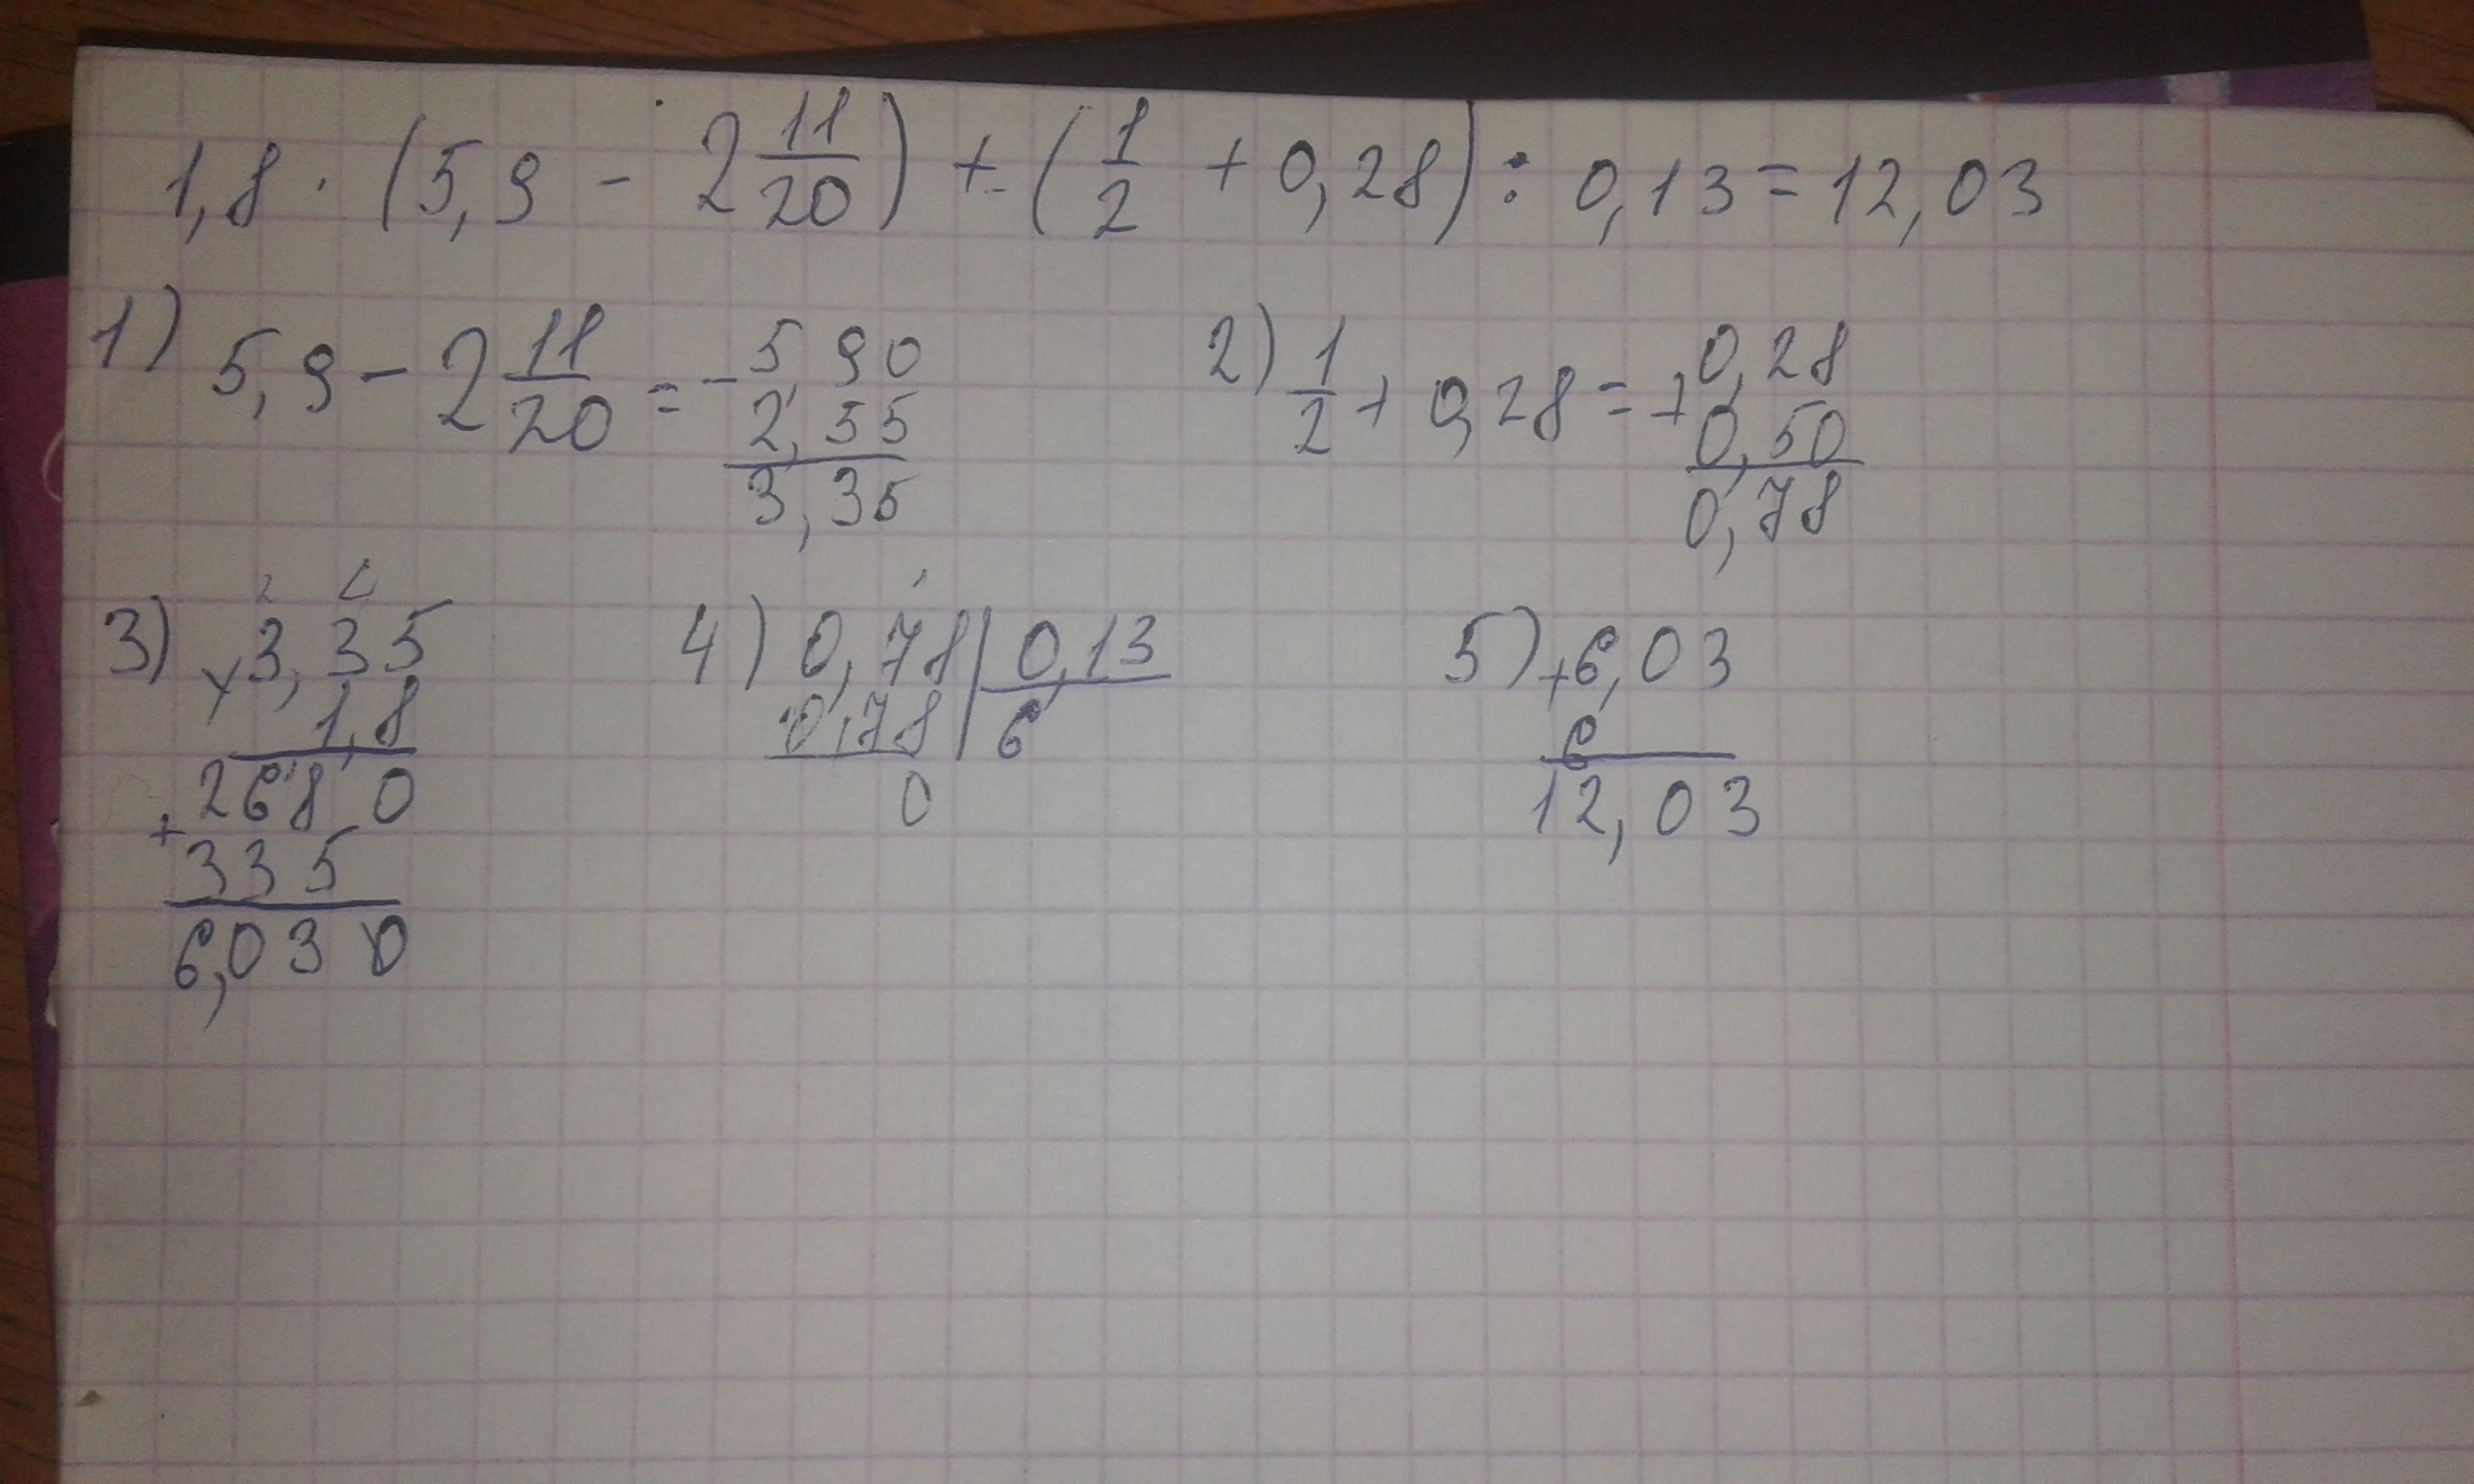 1,8 · (5,9 - 2 11/20) + (1/2 + 0,28) : 0,13 = 12,03
1) 5,9 - 2 11/20 = - 5,90
2,55
3,35
2) 1/2 + 0,28 = + 0,28
0,50
0,78
3) × 3,35
1,8
+ 2680
335
6,030
4) 0,78 | 0,13
0,78 | 6
0
5) + 6,03
6
12,03